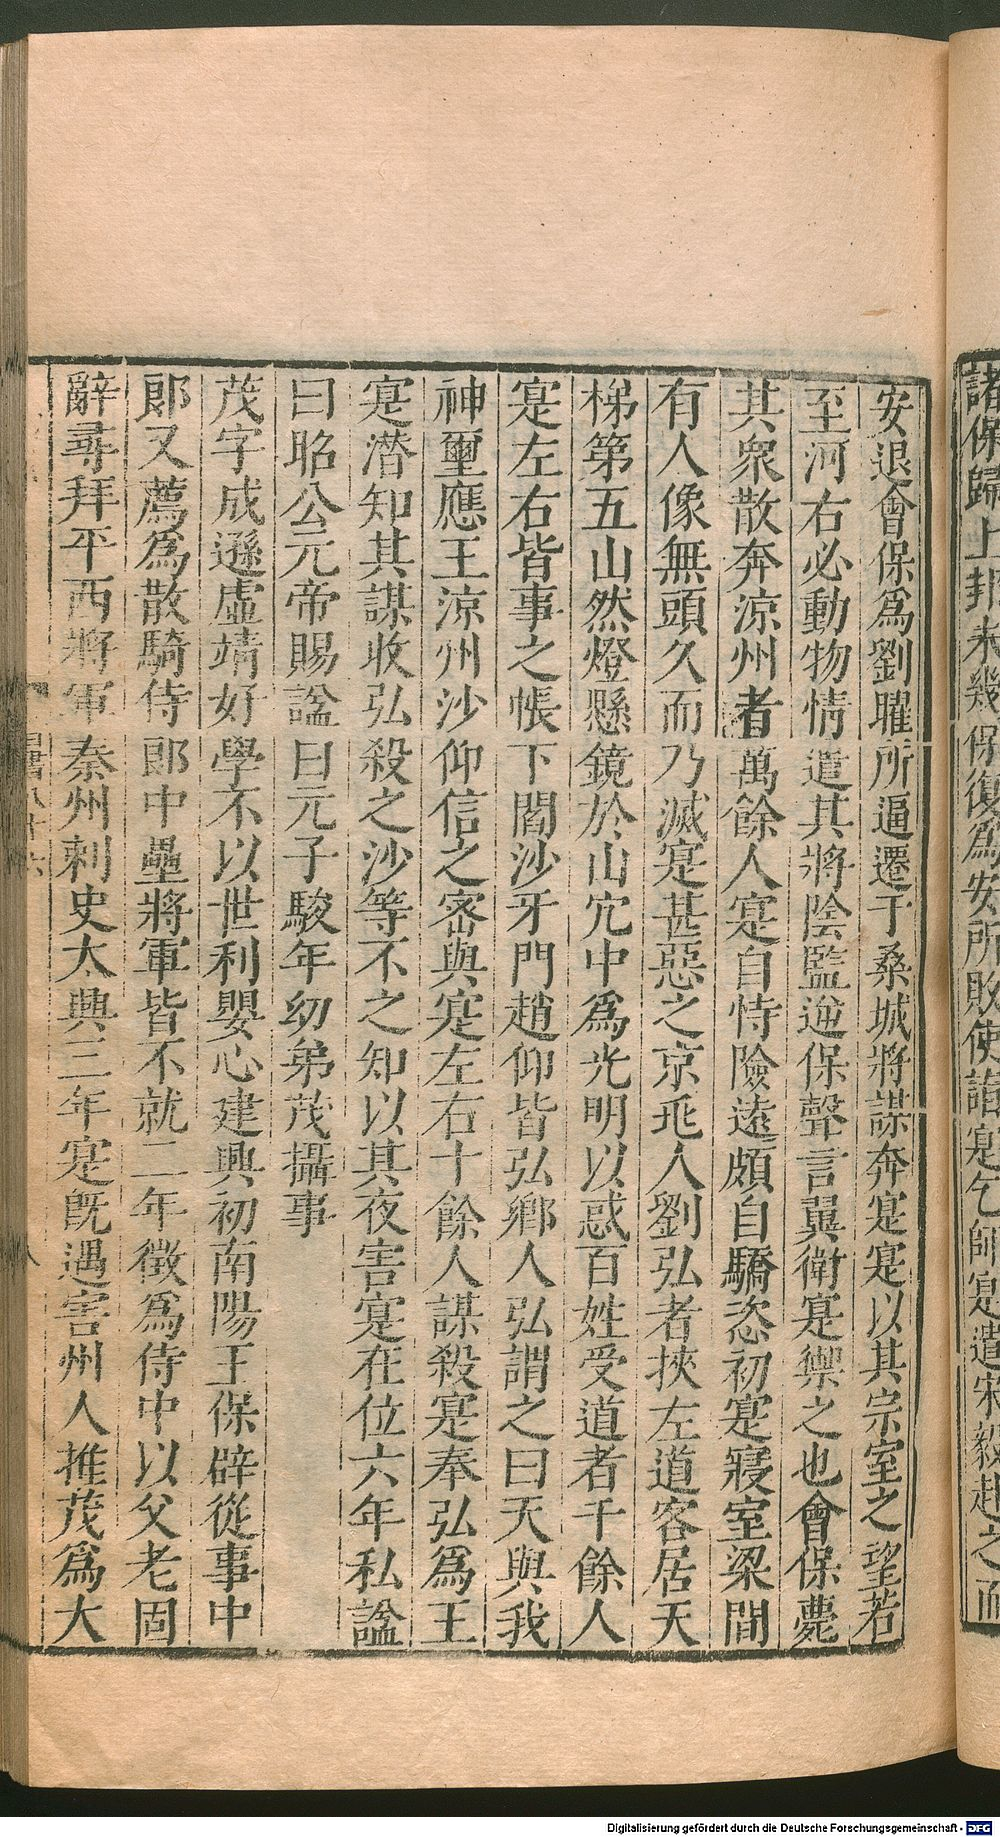 諸保歸上邽未幾保復爲安所敗使詣寔乞師寔遣宋毅赴之而
安退會保爲劉曜所逼遷于桑城將謀奔寔寔以其宗室之望若
至河右必動物情遣其將陰監逆保聲言翼衛寔禦之也會保薨
其衆散奔涼州者萬餘人寔自恃險遠頗自驕恣初寔寢室梁間
有人像無頭久而乃滅寔甚惡之京兆人劉弘者挾左道客居天
梯第五山然燈懸鏡於山穴中爲光明以惑百姓受道者千餘人
寔左右皆事之帳下閻沙牙門趙仰皆弘鄉人弘謂之曰天與我
神璽應王涼州沙仰信之密與寔左右十餘人謀殺寔奉弘爲王
寔潛知其謀收弘殺之沙等不之知以其夜害寔在位六年私諡
曰昭公元帝賜諡曰元子駿年幼弟茂攝事
茂字成遜虛靖好學不以世利嬰心建興初南陽王保辟從事中
郎又薦爲散騎侍郎中壘將軍皆不就二年徵爲侍中以父老固
辭尋拜平西將軍秦州刺史太興三年寔旣遇害州人推茂爲大
八
Digitalisierung gefördert durch die Deutsche Forschungsgemeinschaft - DFG